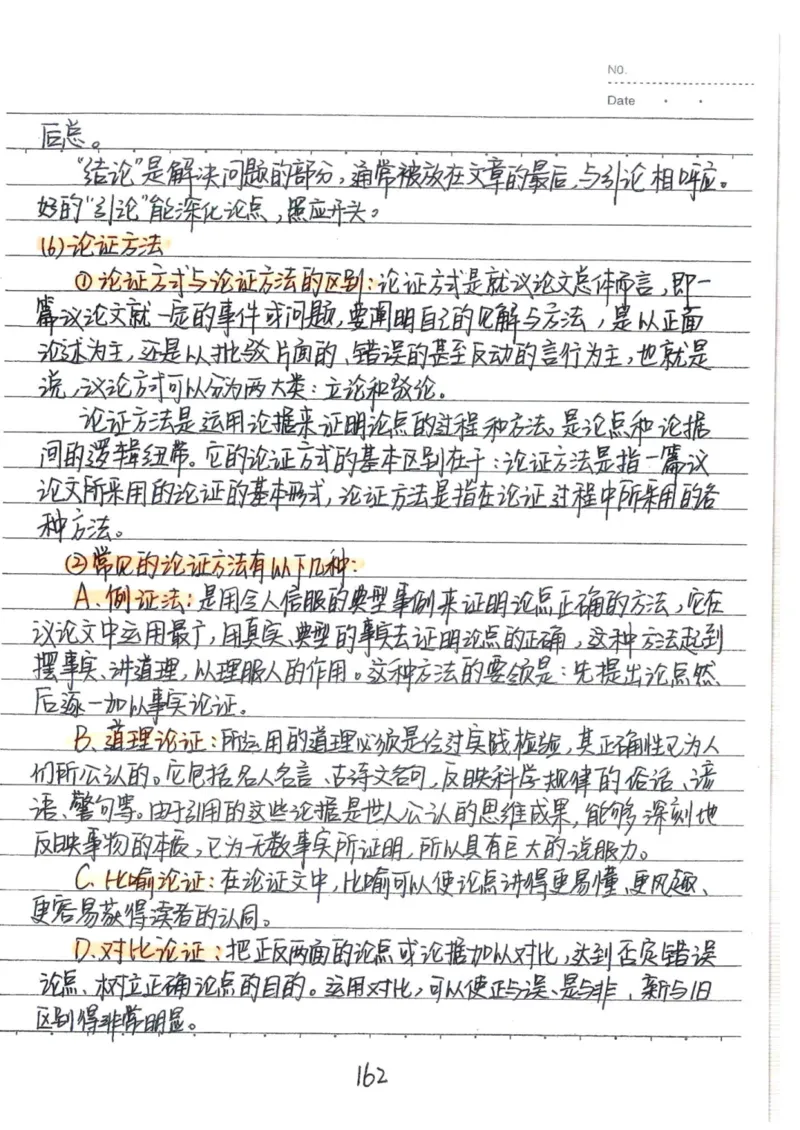 NO.
Date
后总。
“结论”是解决问题的部分，通常被放在文章的最后，与引论相呼应。
好的“引论”能深化论点，照应开头。
(6)论证方法
①论证方式与论证方法的区别：论证方式是就议论文总体而言，即一
篇议论文就一定的事件或问题，要阐明自己的见解与方法，是以正面
论述为主，还是以批驳片面的、错误的甚至反动的言行为主，也就是
说，议论方式可以分为两大类：立论和驳论。
论证方法是运用论据来证明论点的过程和方法。是论点和论据
间的逻辑纽带。它的论证方式的基本区别在于：论证方法是指一篇议
论文所采用的论证的基本形式，论证方法是指在论证过程中所采用的各
种方法。
②常见的论证方法有以下几种：
A、例证法：是用令人信服的典型事例来证明论点正确的方法，它在
议论文中运用最广，用真实、典型的事实去证明论点的正确，这种方法起到
摆事实、讲道理，以理服人的作用。这种方法的要领是：先提出论点然
后逐一加以事实论证。
B、道理论证：所运用的道理必须是经过实践检验，其正确性又为人
们所公认的。它包括名人名言、古诗文名句，反映科学规律的俗话、谚
语、警句等。由于引用的这些论据是世人公认的思维成果，能够深刻地
反映事物的本质，已为无数事实所证明，所以具有巨大的说服力。
C、比喻论证：在论证文中，比喻可以使论点讲得更易懂、更风趣、
更容易获得读者的认同。
D、对比论证：把正反两面的论点或论据加以对比，达到否定错误
论点、树立正确论点的目的。运用对比，可以使正与误、是与非、新与旧
区别得非常明显。
162